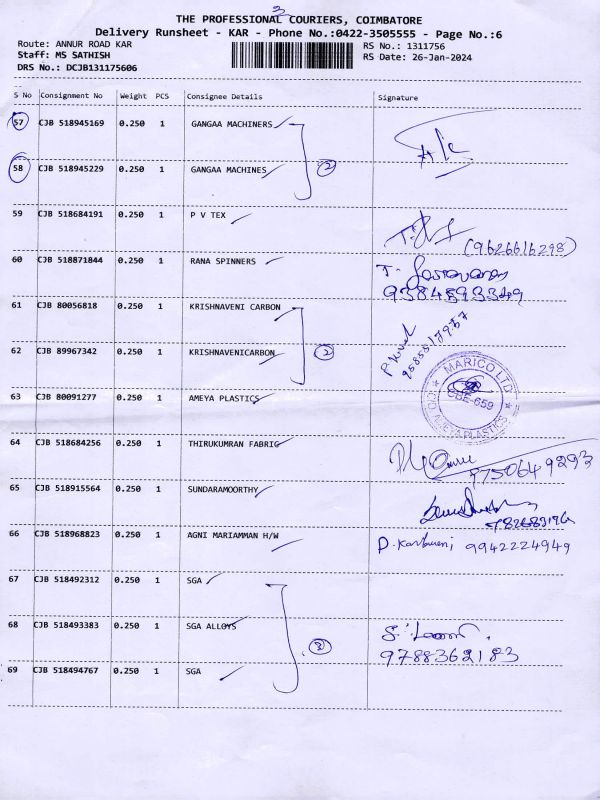 3
THE PROFESSIONAL COURIERS, COIMBATORE
Delivery Runsheet - KAR - Phone No.:0422-3505555 - Page No.:6
Route: ANNUR ROAD KAR RS No.: 1311756
Staff: MS SATHISH RS Date: 26-Jan-2024
DRS No.: DCJB131175606
S No Consignment No Weight PCS Consignee Details Signature
57 CJB 518945169 0.250 1 GANGAA MACHINERS
58 CJB 518945229 0.250 1 GANGAA MACHINES 2
59 CJB 518684191 0.250 1 P V TEX
(9626616298)
60 CJB 518871844 0.250 1 RANA SPINNERS
61 CJB 80056818 0.250 1 KRISHNAVENI CARBON
62 CJB 89967342 0.250 1 KRISHNAVENICARBON 2
MARICO LTD
CBE-659
C/O AMEYA PLASTICS
63 CJB 80091277 0.250 1 AMEYA PLASTICS
64 CJB 518684256 0.250 1 THIRUKUMRAN FABRIC
9750649293
65 CJB 518915564 0.250 1 SUNDARAMOORTHY
66 CJB 518968823 0.250 1 AGNI MARIAMMAN H/W
9942224949
67 CJB 518492312 0.250 1 SGA
68 CJB 518493383 0.250 1 SGA ALLOYS 3
9788362183
69 CJB 518494767 0.250 1 SGA